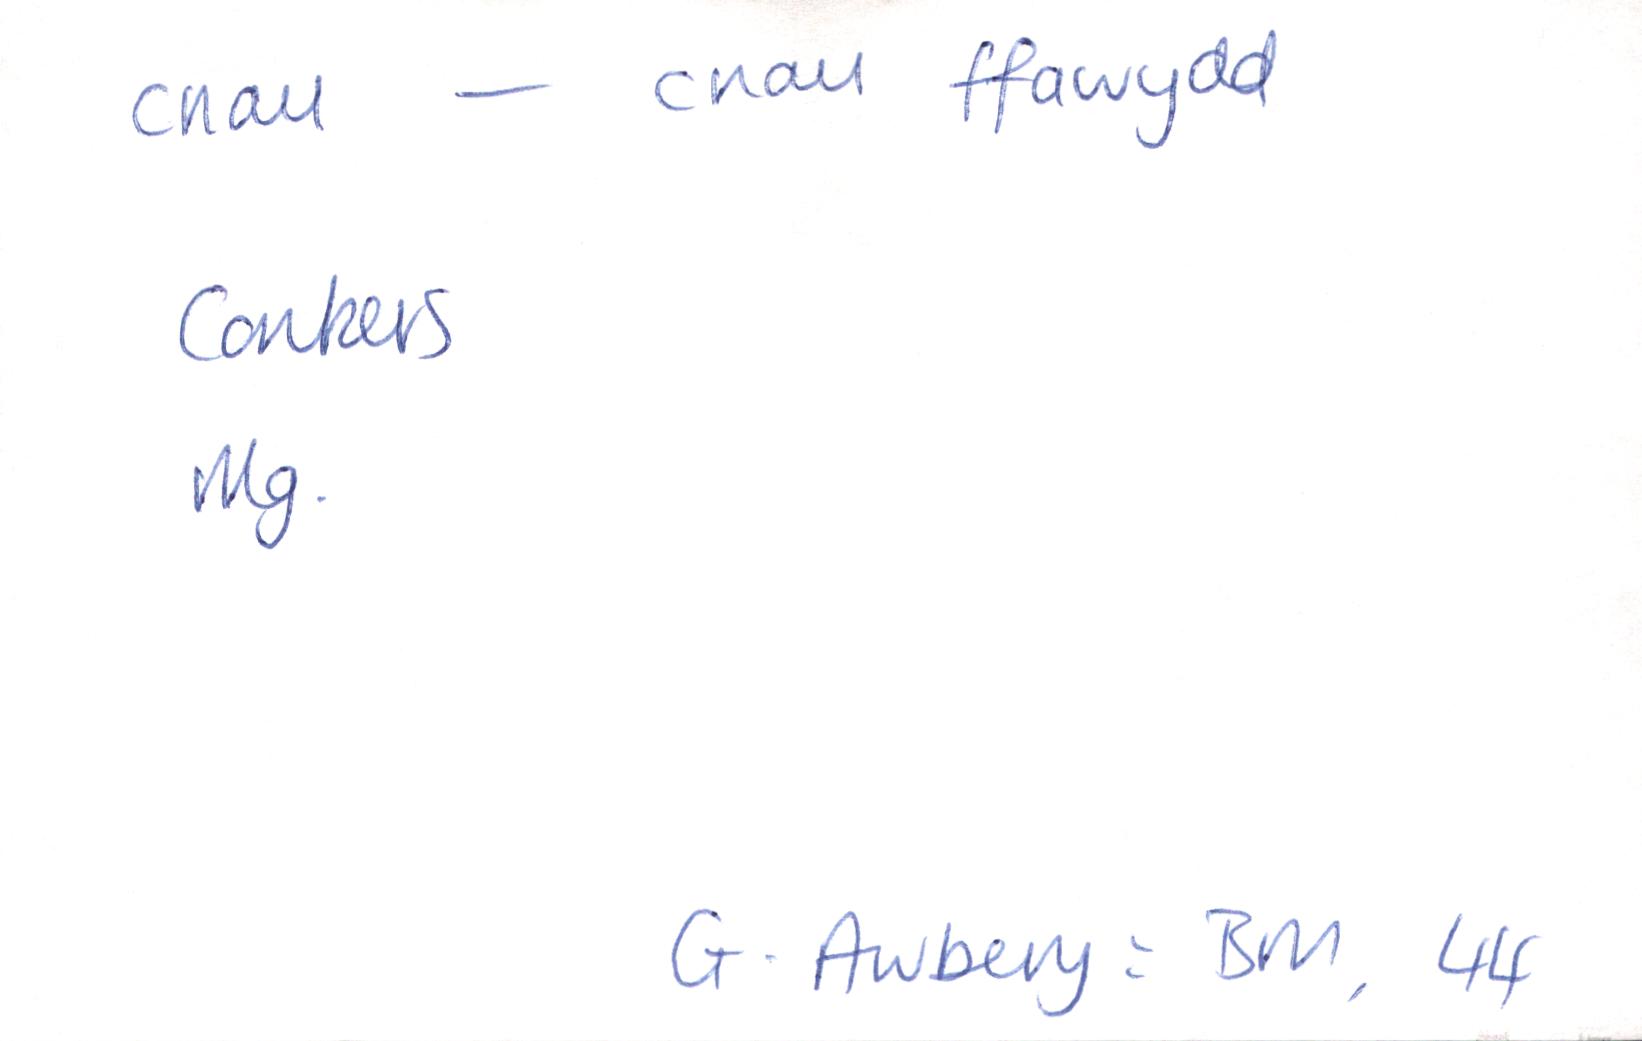 cnau — cnau ffawydd
Conkers
Mg.
G. Awbery: BM, 44